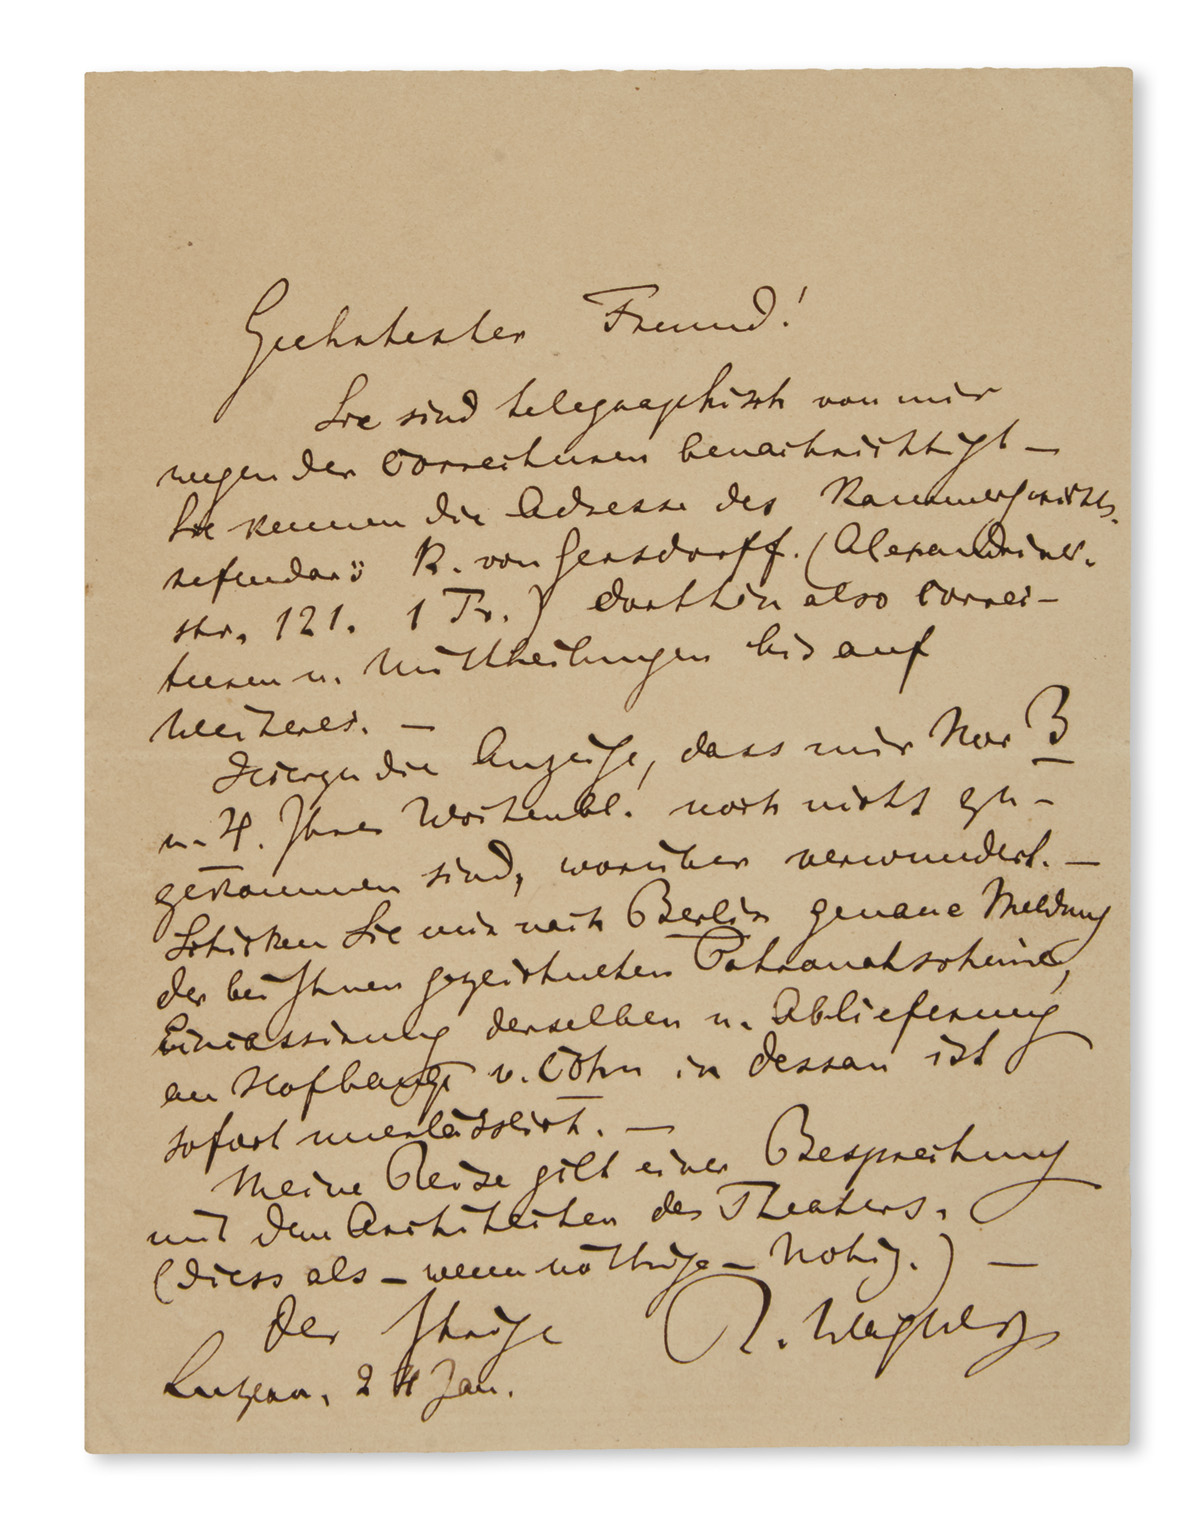 Geehrtester Freund!
Sie sind telegraphisch von mir
wegen der Correcturen benachrichtigt —
Sie kennen die Adresse des Kammergerichts-
referendars R. von Gersdorff. (Alexandrinen-
str. 121. 1 Tr.) dorthin also Correc-
turen u. Mittheilungen bis auf
Weiteres. —
die Anzeige, dass mir Nor 3
u. 4. Ihres Wochenbl. noch nicht zu-
gekommen sind, worüber verwundert. —
Schicken Sie mir nach Berlin genaue Meldung
der bei Ihnen gezeichneten Patronatscheine,
Eincassirung derselben u. Ablieferung
an Hofbanq. v. Cohn in Dessau ist
sofort unerlässlich. —
Meine Reise gilt einer Besprechung
mit dem Architecten des Theaters.
(diess als — wenn nöthige — Notiz.) —
Der Ihrige R. Wagner
Luzern, 24 Jan.